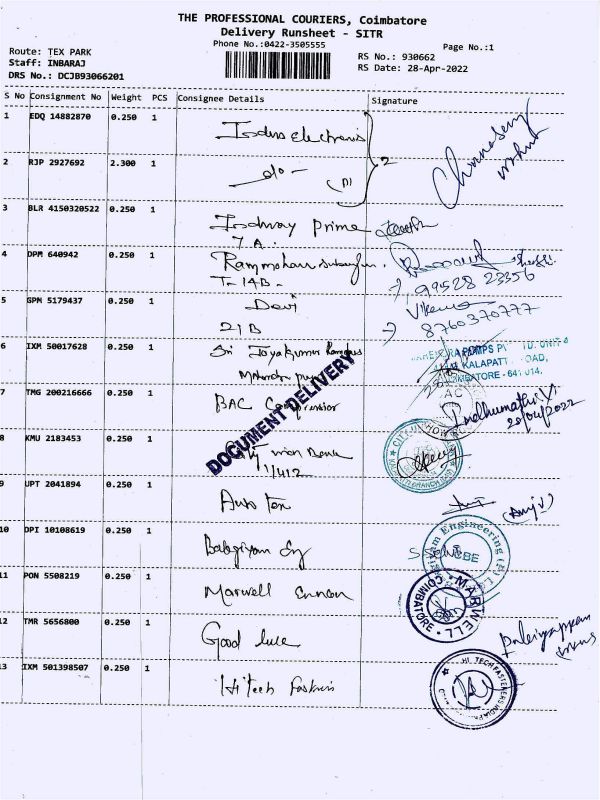 THE PROFESSIONAL COURIERS, Coimbatore
Delivery Runsheet - SITR
Phone No.:0422-3505555
Page No.:1
Route: TEX PARK
Staff: INBARAJ
DRS No.: DCJB93066201
RS No.: 930662
RS Date: 28-Apr-2022
S No Consignment No Weight PCS Consignee Details Signature
1 EDQ 14882870 0.250 1 Indus electronis
2 RJP 2927692 2.300 1 do 2
3 BLR 4150320522 0.250 1 Indway prime
7A.
4 DPM 640942 0.250 1 Rammohan
T-14B- 99528 23356
5 GPN 5179437 0.250 1 Devi
21B 8760370777
6 IXM 50017628 0.250 1 Sri Jayakumar
PUMPS
KALAPATTI ROAD,
COIMBATORE - 641 014.
7 TMG 200216666 0.250 1 BAC Compressor Indhumathi V
28/04/2022
DOCUMENT DELIVERY
8 KMU 2183453 0.250 1 City union Bank
1/412
9 UPT 2041894 0.250 1 Auro Tex
(Anj V)
10 DPI 10108619 0.250 1 Engineering (P) L
CBE
11 PON 5508219 0.250 1 Marwell MARWELL COIMBATORE
12 TMR 5656800 0.250 1 Good luck
13 IXM 501398507 0.250 1 Hi Tech Fastners HI. TECH FASTENERS INDIA